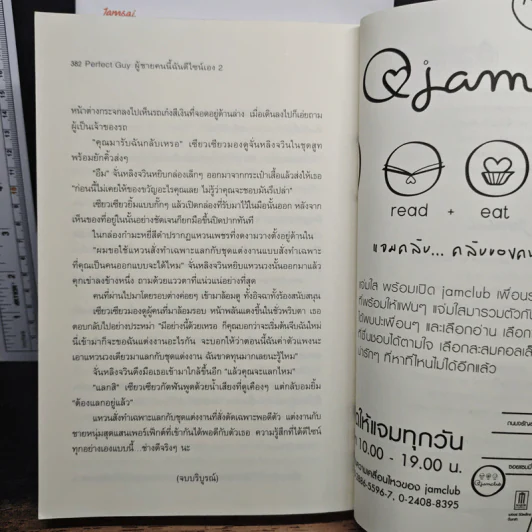 แจ่มใส
382 Perfect Guy ผู้ชายคนนี้ฉันดีไซน์เอง 2
หน้าต่างกระจกลงไปเห็นรถเก๋งสีเงินที่จอดอยู่ด้านล่าง เมื่อเดินลงไปก็เอ่ยถาม
ผู้เป็นเจ้าของรถ
"คุณมารับฉันกลับเหรอ" เซียวเซียวมองดูจั่นหลิงจวินในชุดสูท
พร้อมยักคิ้วส่งๆ
"อืม" จั่นหลิงจวินหยิบกล่องเล็กๆ ออกมาจากกระเป๋าเสื้อแล้วส่งให้เธอ
"ก่อนนี้ไม่เคยให้ของขวัญอะไรคุณเลย ไม่รู้ว่าคุณจะชอบมันรึเปล่า"
เซียวเซียวยิ้มแบบกั๊กๆ แล้วเปิดกล่องที่รับมาไว้ในมือนั้นออก หลังจาก
เห็นของที่อยู่ในนั้นอย่างชัดเจนก็ยกมือขึ้นปิดปากทันที
ในกล่องกำมะหยี่สีดำปรากฏแหวนเพชรที่งดงามวางตั้งอยู่ด้านใน
"ผมขอใช้แหวนสั่งทำเฉพาะแลกกับชุดแต่งงานแบบสั่งทำเฉพาะ
ที่คุณเป็นคนออกแบบจะได้ไหม" จั่นหลิงจวินหยิบแหวนวงนั้นออกมาแล้ว
คุกเข่าลงข้างหนึ่ง ถามด้วยแววตาที่แน่วแน่อย่างที่สุด
คนที่ผ่านไปมาโดยรอบต่างค่อยๆ เข้ามาล้อมดู ทั้งอิจฉาทั้งร้องสนับสนุน
เซียวเซียวมองดูผู้คนที่มาล้อมรอบ หน้าพลันแดงขึ้นในชั่วพริบตา เธอ
ตอบกลับไปอย่างประหม่า "มีอย่างนี้ด้วยเหรอ ก็คุณบอกว่าจะเริ่มต้นจีบฉันใหม่
นี่เข้ามาก็จะขอฉันแต่งงานอะไรกัน จะบอกให้ว่าตอนนี้ฉันค่าตัวแพงนะ
เอาแหวนวงเดียวมาแลกกับชุดแต่งงาน ฉันขาดทุนมากเลยนะรู้ไหม"
จั่นหลิงจวินดึงมือเธอเข้ามาใกล้ขึ้นอีก "แล้วคุณจะแลกไหม"
"แลกสิ" เซียวเซียวกัดฟันพูดด้วยน้ำเสียงที่ดูเคืองๆ แต่กลับอมยิ้ม
"ต้องแลกอยู่แล้ว"
แหวนสั่งทำเฉพาะแลกกับชุดแต่งงานที่สั่งตัดเฉพาะพอดีตัว แต่งงานกับ
ชายหนุ่มสุดแสนเพอร์เฟ็กต์ที่เข้ากันได้พอดีกับตัวเธอ ความรู้สึกที่ได้ดีไซน์
ทุกอย่างเองแบบนี้...ช่างดีจริงๆ นะ
(จบบริบูรณ์)
jam
read + eat
แจมคลับ... คลับของคน
แจ่มใส พร้อมเปิด jamclub เพื่อน
ที่พร้อมให้แฟนๆ แจ่มใสมารวมตัวกัน
ได้พบปะเพื่อนๆ และเลือกอ่าน เลือก
ที่ชื่นชอบได้ตามใจ เลือกสะสมคอลเล็
น่ารักๆ ที่หาที่ไหนไม่ได้อีกแล้ว
ให้แจมทุกวัน
10.00 - 19.00 น.
ความเคลื่อนไหวของ jamclub
886-5596-7, 0-2408-8395
jamclub